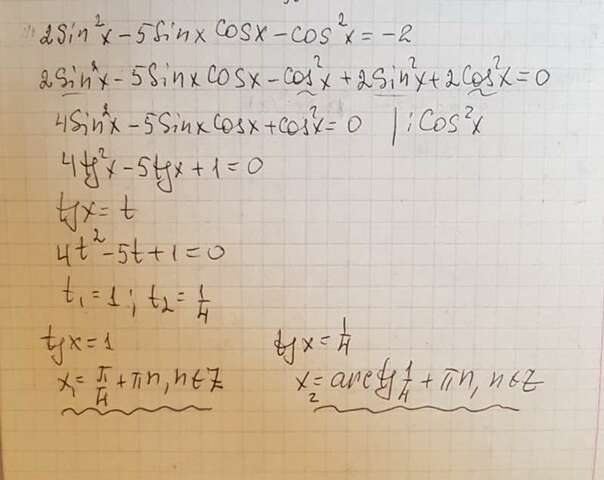 2Sin²x − 5Sinx Cosx − cos²x = −2
2Sin²x − 5Sinx Cosx − Cos²x + 2Sin²x + 2Cos²x = 0
4Sin²x − 5Sinx cosx + cos²x = 0 | : Cos²x
4tg²x − 5tgx + 1 = 0
tgx = t
4t² − 5t + 1 = 0
t₁ = 1 ; t₂ = 1/4
tgx = 1 tgx = 1/4
x₁ = π/4 + πn, n∈Z x₂ = arctg 1/4 + πn, n∈Z